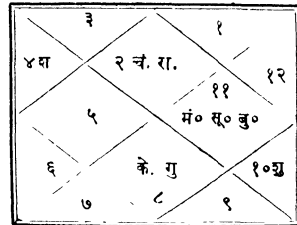 ३
१
४ श
२ चं. रा.
१२
११
५
मं० सू० बु०
६
के. गु
१० शु
७
८
९